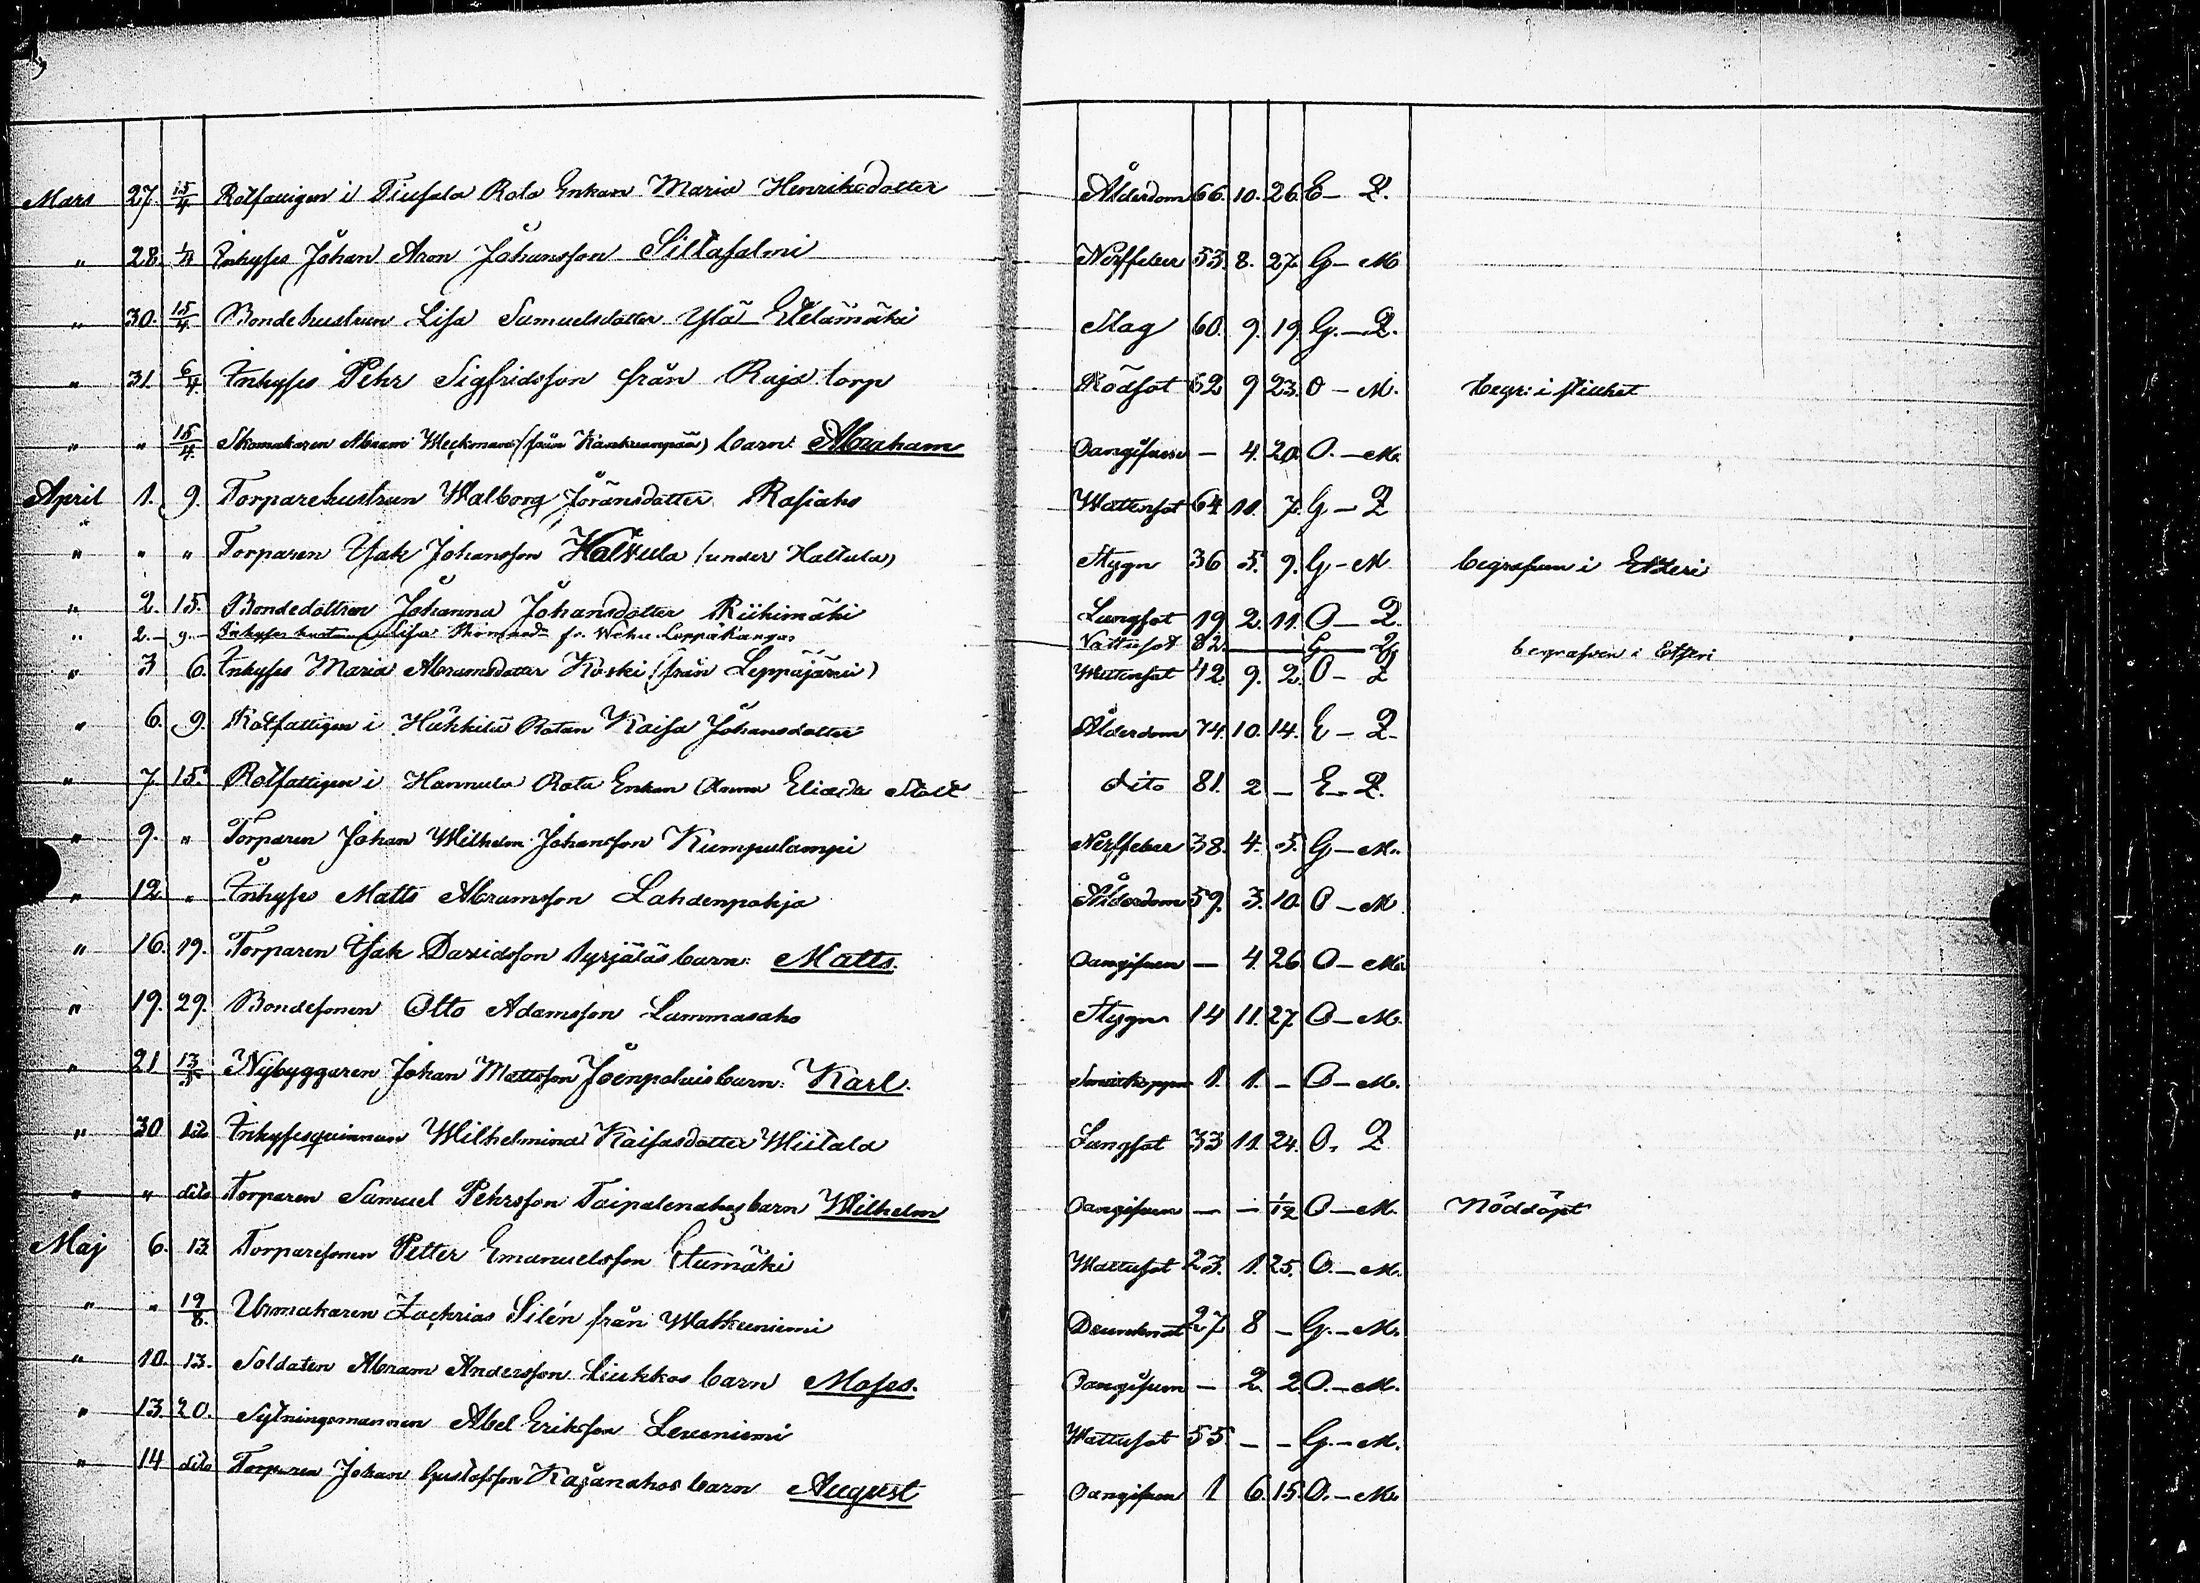 Mars 27. 15/4 Rotfattigen i Rota Enkan Maria Henriksdotter Ålderdom 66. 10. 26. E – Q.
" 28. 1/4 Inhyses Johan Aron Johansson Siltasalmi Nerffeber 53. 8. 27. G – M
" 30. 15/4 Bondehustrun Lisa Samuelsdotter Ylä Etelämäki Slag 60. 9. 19. G. – Q.
" 31 6/4. Inhyses Pehr Sigfridsson från Raja torp Rödsot 52 9 23. O – M. begr: i
" " 15/4. Skomakaren Abram Weckman (från ) barn: Abraham Oangifven – 4. 20. O. – M.
April 1. 9. Torparehustrun Walborg Jöransdotter Rasiaho Wattensot 64 11. 7. G – Q
" " " Torparen Isak Johansson Hallula (under Hallula) Stygn 36 5. 9. G – M begrafven i Etseri
" 2. 15. Bondedottren Johanna Johansdotter Riihimäki Lungsot 19 2. 11. O – Q.
" 2. – 9. – Inhyses hustrun Lisa fr. Leppäkangas Vattusot 82. – – G – Q begrafven i Etseri
" 3 6. Inhyses Maria Abramsdotter Koski (från Leppäjärvi) Wattensot 42. 9. 2. O – Q
" 6. 9. Rotfattigen i Häkkilä Rotan Kaisa Johansdotter Ålderdom 74. 10. 14. E – Q.
" 7. 15. Rotfattigen i Hannula Rota Enkan Anna Eliasdr Stolt dito 81. 2 – E – Q.
" 9. " Torparen Johan Wilhelm Johansson Kumpulampi Nerffeber 38. 4. 5. G – M.
" 12. " Inhyses Matts Abramsson Lahdenpohja Ålderdom 59. 3. 10. O – M
" 16. 19. Torparen Isak Davidsson Syrjäläs barn: Matts. Oangifven – 4. 26 O – M.
" 19. 29. Bondesonen Otto Adamsson Lammasaho Stygn 14 11. 27 O – M.
" 21 13/5 Nybyggaren Johan Mattsson Joenpoluis barn: Karl. Smittkoppor 1. 1. – O – M.
" 30 dito Inhysesqvinnan Wilhelmina Kaisasdotter Wiitala Lungsot 33 11. 24. O. Q
" " dito Torparen Samuel Pehrsson Taipalenahos barn Wilhelm Oangifven – – 1/12 O – M. Nöddöpt
Maj 6. 13. Torparesonen Petter Emanuelsson Etumäki Wattusot 23. 1. 25. O. – M.
" " 19/8. Urmakaren Zachrias Silén från Watkuniemi Drunknat 27 8 – G. – M.
" 10. 13. Soldaten Abram Andersson Liukkos barn Moses. Oangifven – 2. 2. O. – M.
" 13. 20. Sytningsmannen Abel Eriksson Leveniemi Wattusot 55. – – G. – M.
" 14 dito Torparen Johan Gustafsson Kasanahos barn August Oangifven 1 6. 15. O. – M.